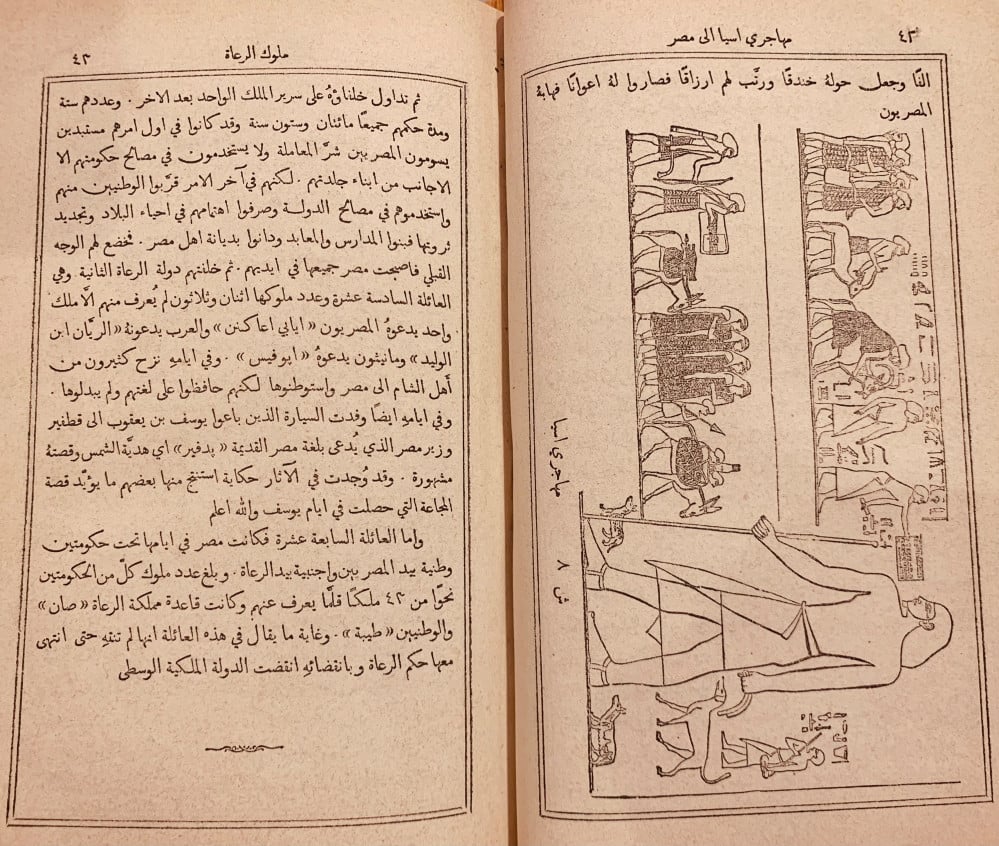 ٤٢
مهاجري اسيا الى مصر
الفًا وجعل حولهُ خندقًا ورتَّب لهم ارزاقًا فصاروا لهُ اعوانًا فهابهُ
المصريون
مهاجري اسيا
ش ٨
ملوك الرعاة
٤٣
ثم تداول خلفاؤهُ على سرير الملك الواحد بعد الاخر . وعددهم ستة
ومدة حكمهم جميعًا مائتان وستون سنة وقد كانوا في اول امرهم مستبدين
يسومون المصريين شرَّ المعاملة ولا يستخدمون في مصالح حكومتهم الا
الاجانب من ابناء جلدتهم . لكنهم في آخر الامر قرَّبوا الوطنيين منهم
واستخدموهم في مصالح الدولة وصرفوا اهتمامهم في احياء البلاد وتجديد
ثروتها فبنوا المدارس والمعابد ودانوا بديانة اهل مصر . فخضع لهم الوجه
القبلي فاصبحت مصر جميعها في ايديهم . ثم خلفتهم دولة الرعاة الثانية وهي
العائلة السادسة عشرة وعدد ملوكها اثنان وثلاثون لم يُعرف منهم الَّا ملك
واحد يدعوهُ المصريون « ايابي اعاكنن » والعرب يدعونهُ « الريَّان ابن
الوليد » ومانيثون يدعوهُ « ابوفيس » . وفي ايامهِ نزح كثيرون من
أهل الشام الى مصر واستوطنوها لكنهم حافظوا على لغتهم ولم يبدلوها .
وفي ايامهِ ايضًا وفدت السيارة الذين باعوا يوسف بن يعقوب الى قطفير
وزير مصر الذي يُدعى بلغة مصر القديمة « بدفير » اي هديَّة الشمس وقصتهُ
مشهورة . وقد وُجدت في الآثار حكاية استنتج منها بعضهم ما يؤيد قصة
المجاعة التي حصلت في ايام يوسف والله اعلم
واما العائلة السابعة عشرة فكانت مصر في ايامها تحت حكومتين
وطنية بيد المصريين واجنبية بيد الرعاة . وبلغ عدد ملوك كلّ من الحكومتين
نحوًا من ٤٣ ملكًا قلَّما يعرف عنهم وكانت قاعدة مملكة الرعاة « صان »
والوطنيين « طيبة » . وغاية ما يقال في هذه العائلة انها لم تنتهِ حتى انتهى
معها حكم الرعاة وبانقضائهِ انقضت الدولة الملكية الوسطى